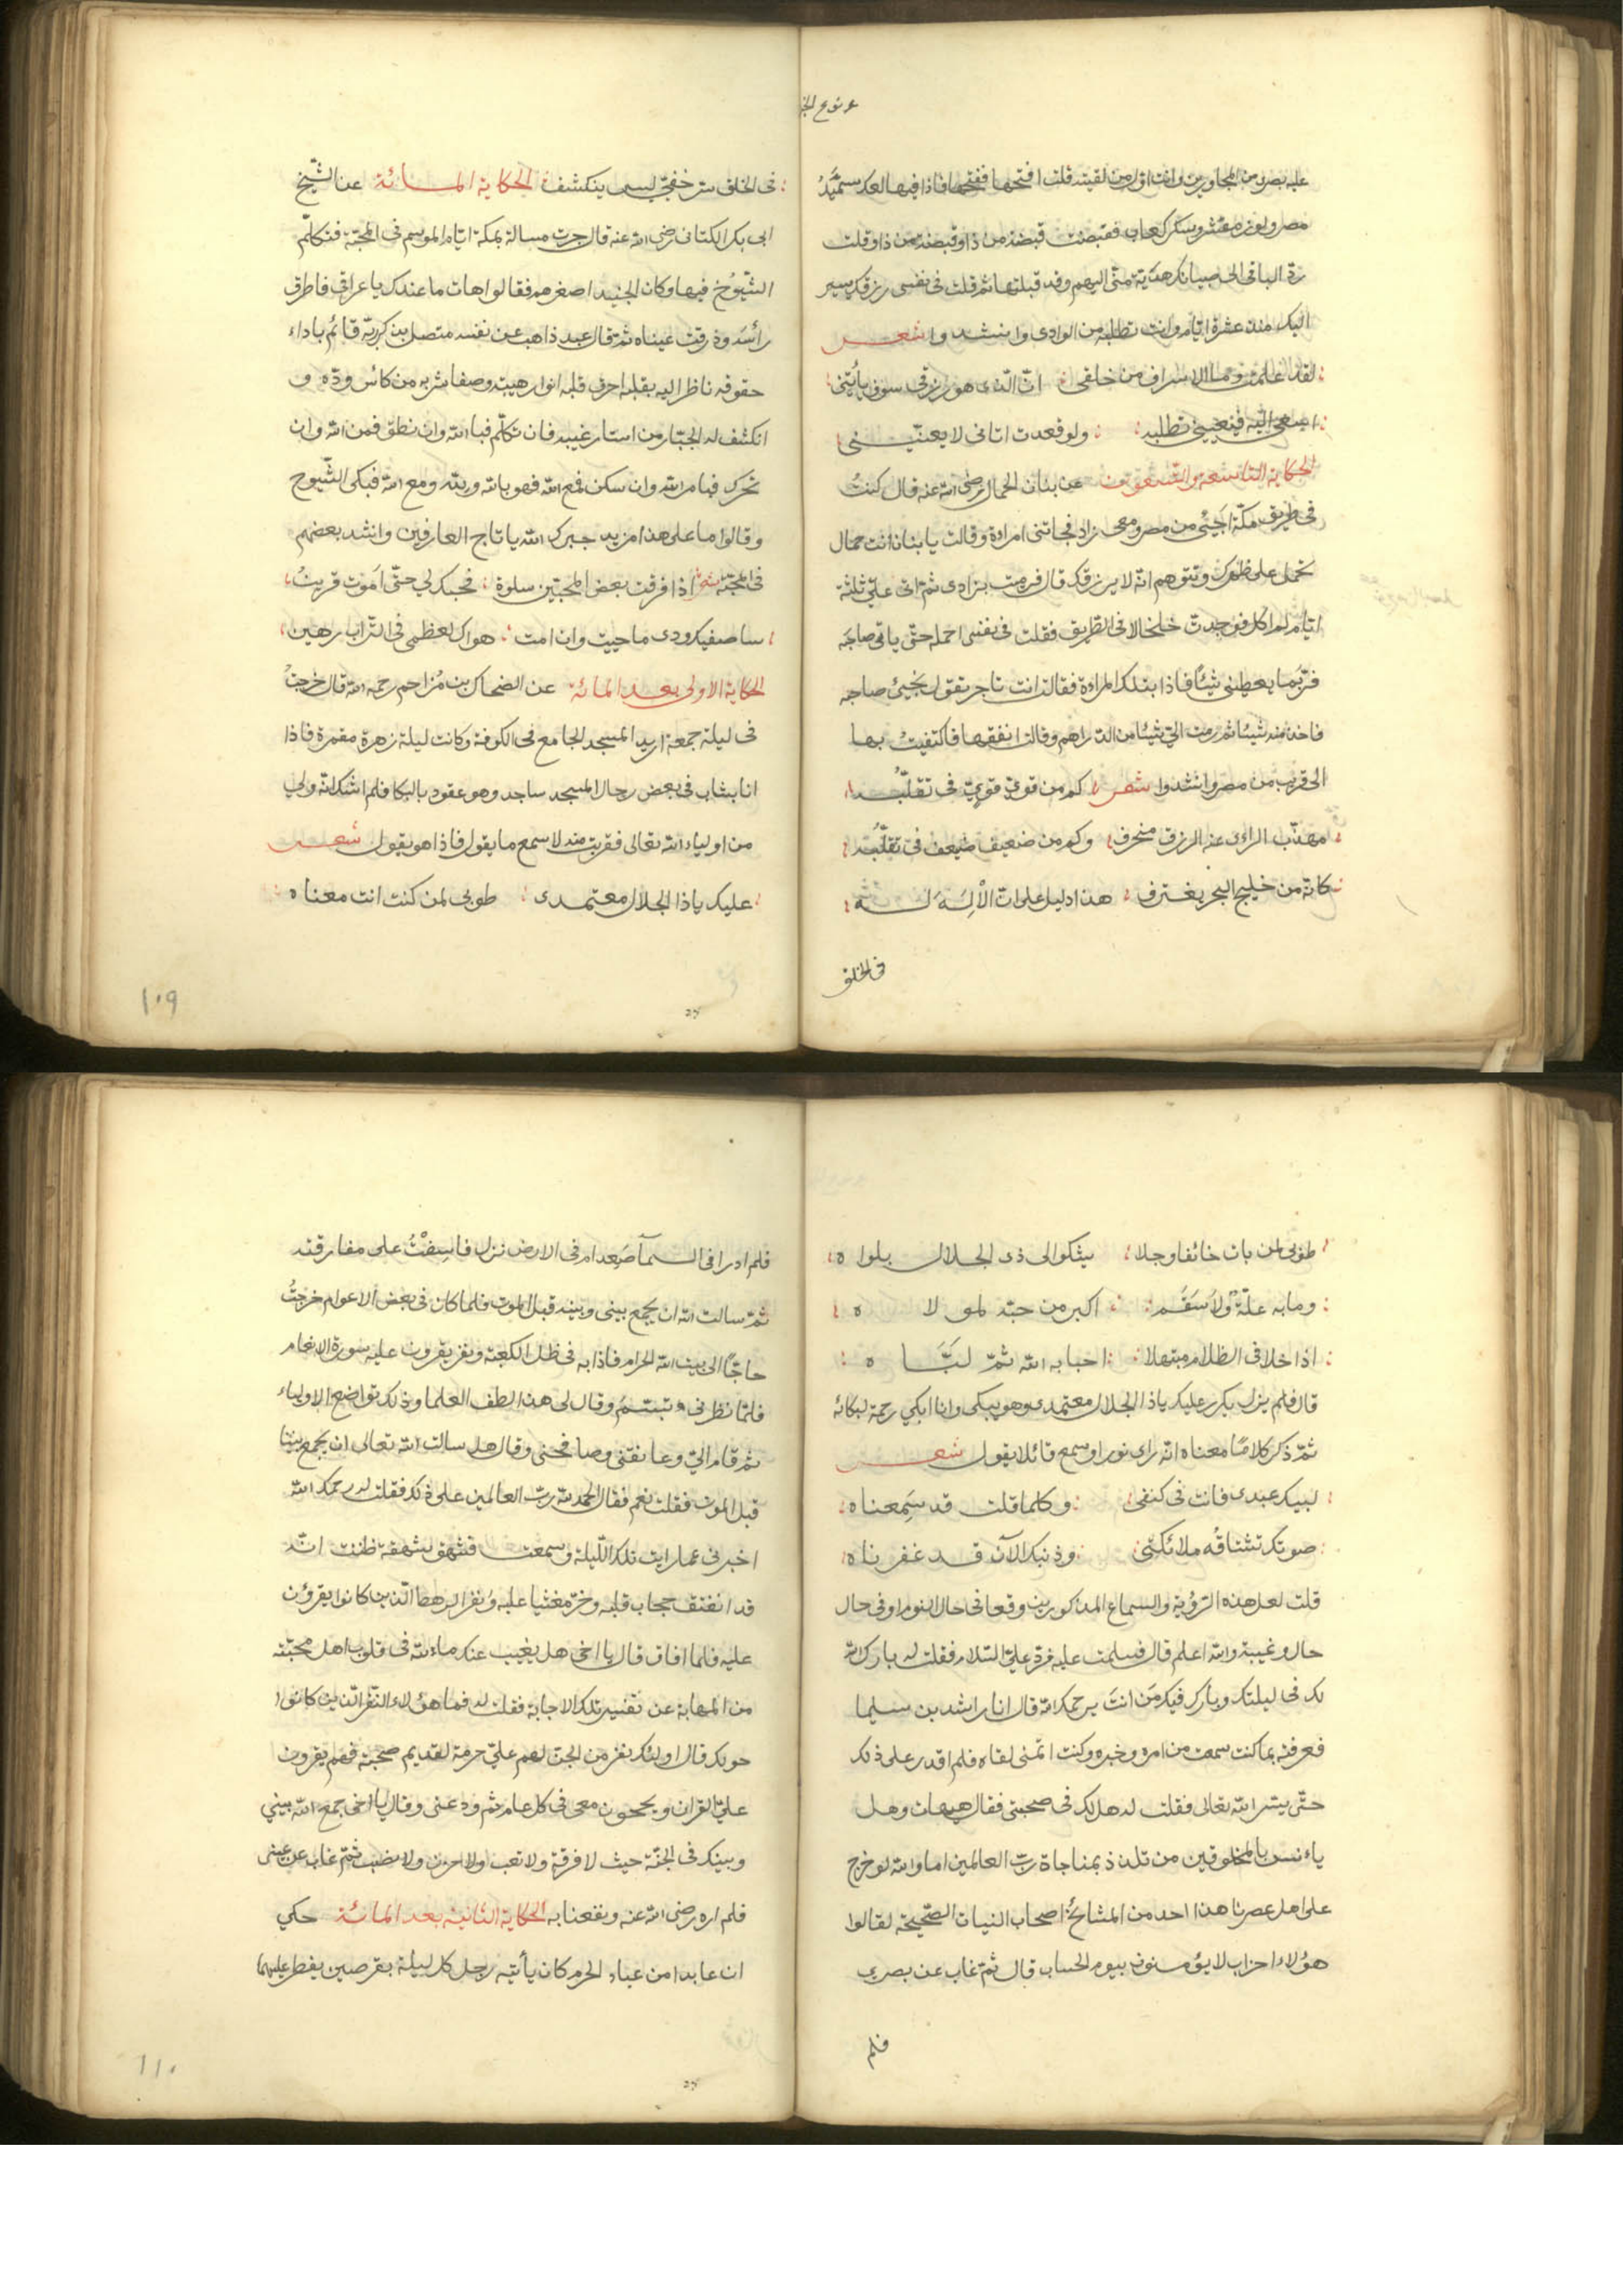 عليه بصرك من المجاورين وانت اول من لقيته قلت افتحها ففتحها فاذا فيها كعك سميد
مصر ولوز مقشر وسكر كعاب فقبضت قبضة من ذا وقبضة من ذا وقلت
ردّ الباقى الى صبيانك هديّة منّى اليهم وقد قبلتها ثم قلت فى نفسى رزقك يسير
اليك منذ عشرة ايام وانت تطلبه من الوادى وانشدوا شعر
لقد علمت وما الاسراف من خلقى انّ الّذى هو رزقى سوف يأتينى
اسعى اليه فيعيينى تطلبه ولو قعدت اتانى لا يعنّينى
الحكاية التاسعة والتسعون عن بنان الحمال رضى الله عنه قال كنتُ
فى طريق مكّة اجئ من مصر ومعى زاد فجاتنى امراة وقالت يا بنان انت حمال
تحمل على ظهرك وتتوهم انّه لا يرزقك قال فرميت بزادى ثم اتى علىّ ثلثة
ايام لم اكل فوجدت خلخالا فى الطريق فقلت فى نفسى احمله حتّى ياتى صاحبه
فربّما يعطينى شيئا فاذا بتلك المراة فقالت انت تاجر تقول يجيئ صاحبه
فاخذ منه شيئا ثم رمت الىّ شيئا من الدراهم وقالت انفقها فاكتفيتُ بها
الى قريب من مصر وانشدوا شعر كم من قوىّ قوىّ فى تقلّبه
مهذّب الراى عنه الرزق منحرف وكم من ضعيف ضعيف فى تقلّبه
كانّه من خليج البحر يغترف هذا دليل على ان الاله له
فى الخلق
فى الخلق سرّ خفىّ ليس ينكشف الحكاية المائة عن الشّيخ
ابى بكر الكتانى رضى الله عنه قال جرت مسالة بمكة ايّام الموسم فى المحبّة فتكلّم
الشّيوخ فيها وكان الجنيد اصغرهم فقالوا هات ما عندك يا عراقى فاطرق
رأسه وذرفت عيناه ثم قال عبد ذاهب عن نفسه متصل بذكر ربّه قائم باداء
حقوقه ناظر اليه بقلبه احرق قلبه انوار هيبته وصفا شربه من كائس ودّه و
انكشف له الجبّار من استار غيبه فان تكلّم فبالله وان نطق فمن الله وان
تحرك فبامر الله وان سكن فمع الله فهو بالله ولله ومع الله فبكى الشّيوخ
وقالوا ما على هذا مزيد جبرك الله يا تاج العارفين وانشد بعضهم
فى المحبّة شعر اذا فرقت بعض المحبّين سلوة فحبك لى حتّى اموت قرين
ساصفيك ودى ما حييت وان امت هواك لعظمى فى التّراب رهين
الحكاية الاولى بعد المائة عن الضحاك بن مزاحم رحمه الله قال خرجت
فى ليلة جمعة اريد المسجد الجامع فى الكوفة وكانت ليلة زهرة مقمرة فاذا
انا بشاب فى بعض رحال المسجد ساجد وهو عقود بالبكا فلم اشك انّه ولى
من اولياء الله تعالى فقربت منه لاسمع ما يقول فاذا هو يقول شعر
عليك ياذا الجلال معتمدى طوبى لمن كنت انت معناه
١٠٩
طوبى لمن بات خائفا وجلا يشكو الى ذى الجلال بلواه
وما به علّة ولا سقم اكبر من حبّه لمولاه
اذا خلا فى الظلام مبتهلا احبابه الله ثمّ لبّاه
قال فلم يزل يكرر عليك ياذا الجلال معتمدى وهو يبكى وانا ابكى رحمة لبكائه
ثمّ ذكر كلاما معناه انّه راى نورا وسمع قائلا يقول شعر
لبيك عبدى فانت فى كنفى وكلما قلت قد سمعناه
صوتك تشتاقه ملائكتى وذنبك الآن قد غفرناه
قلت لعل هذه الرّؤية والسماع المذكورين وقعا فى حال النوم او فى حال
حال وغيبة والله اعلم قال فسلمت عليه فردّ علىّ السّلام فقلت له بارك الله
لك فى ليلتك وبارك فيك من انت يرحمك الله قال انا راشد بن سليما
فعرفته بما كنت سمعت من امره وخبره وكنت اتمنى لقاه فلم اقدر على ذلك
حتّى يسّر الله تعالى فقلت له هل لك فى صحبتى فقال هيهات وهل
يانس بالمخلوقين من تلذذ بمناجاة ربّ العالمين اما والله لو خرج
على اهل عصرنا هذا احد من المشائخ اصحاب النيات الصّحيحة لقالوا
هؤلاء احزاب لا يؤمنون بيوم الحساب قال ثم غاب عن بصرى
فلم
فلم ادر افى السمآ صعد ام فى الارض نزل فاسفتُ على مفارقته
ثمّ سالت الله ان يجمع بينى وبينه قبل الموت فلما كان فى بعض الاعوام خرجتُ
حاجّا الى بيت الله الحرام فاذا به فى ظل الكعبة ونفر يقرون عليه سورة الانعام
فلمّا نظرنى تبسّم وقال لى هذا لطف العلما وذلك تواضع الاولياء
ثم قام الىّ وعانقنى وصافحنى وقال هل سالت الله تعالى ان يجمع بيننا
قبل الموت فقلت نعم فقال الحمد لله ربّ العالمين على ذلك فقلت له رحمك الله
اخبرنى عما رايت تلك اللّيلة وسمعت فشهق شهقة ظننت انّه
قد انفتق حجاب قلبه وخرّ مغشيا عليه ونفر الرهط الّذين كانوا يقرؤن
عليه فلما افاق قال يا اخى هل يغيب عنك ماءلله فى قلوب اهل محبّته
من المهابة عن تفسير تلك الاجابة فقلت له فما هؤلاء النّفر الّذين كانوا
حولك قال اولئك نفر من الجنّ لهم علىّ حرمة لقديم صحبة فهم يقرون
علىّ القران ويحجون معى فى كل عام ثم ودعنى وقال يا اخى جمع الله بينى
وبينك فى الجنّة حيث لا فرقة ولا تعب ولا حزن ولا نصب ثمّ غاب عن عينى
فلم اره رضى الله عنه ونفعنا به الحكاية الثانية بعد المائة حكى
ان عابدا من عباد الحرم كان يأتيه رجل كل ليلة بقرصين يفطر عليهما
١١٠